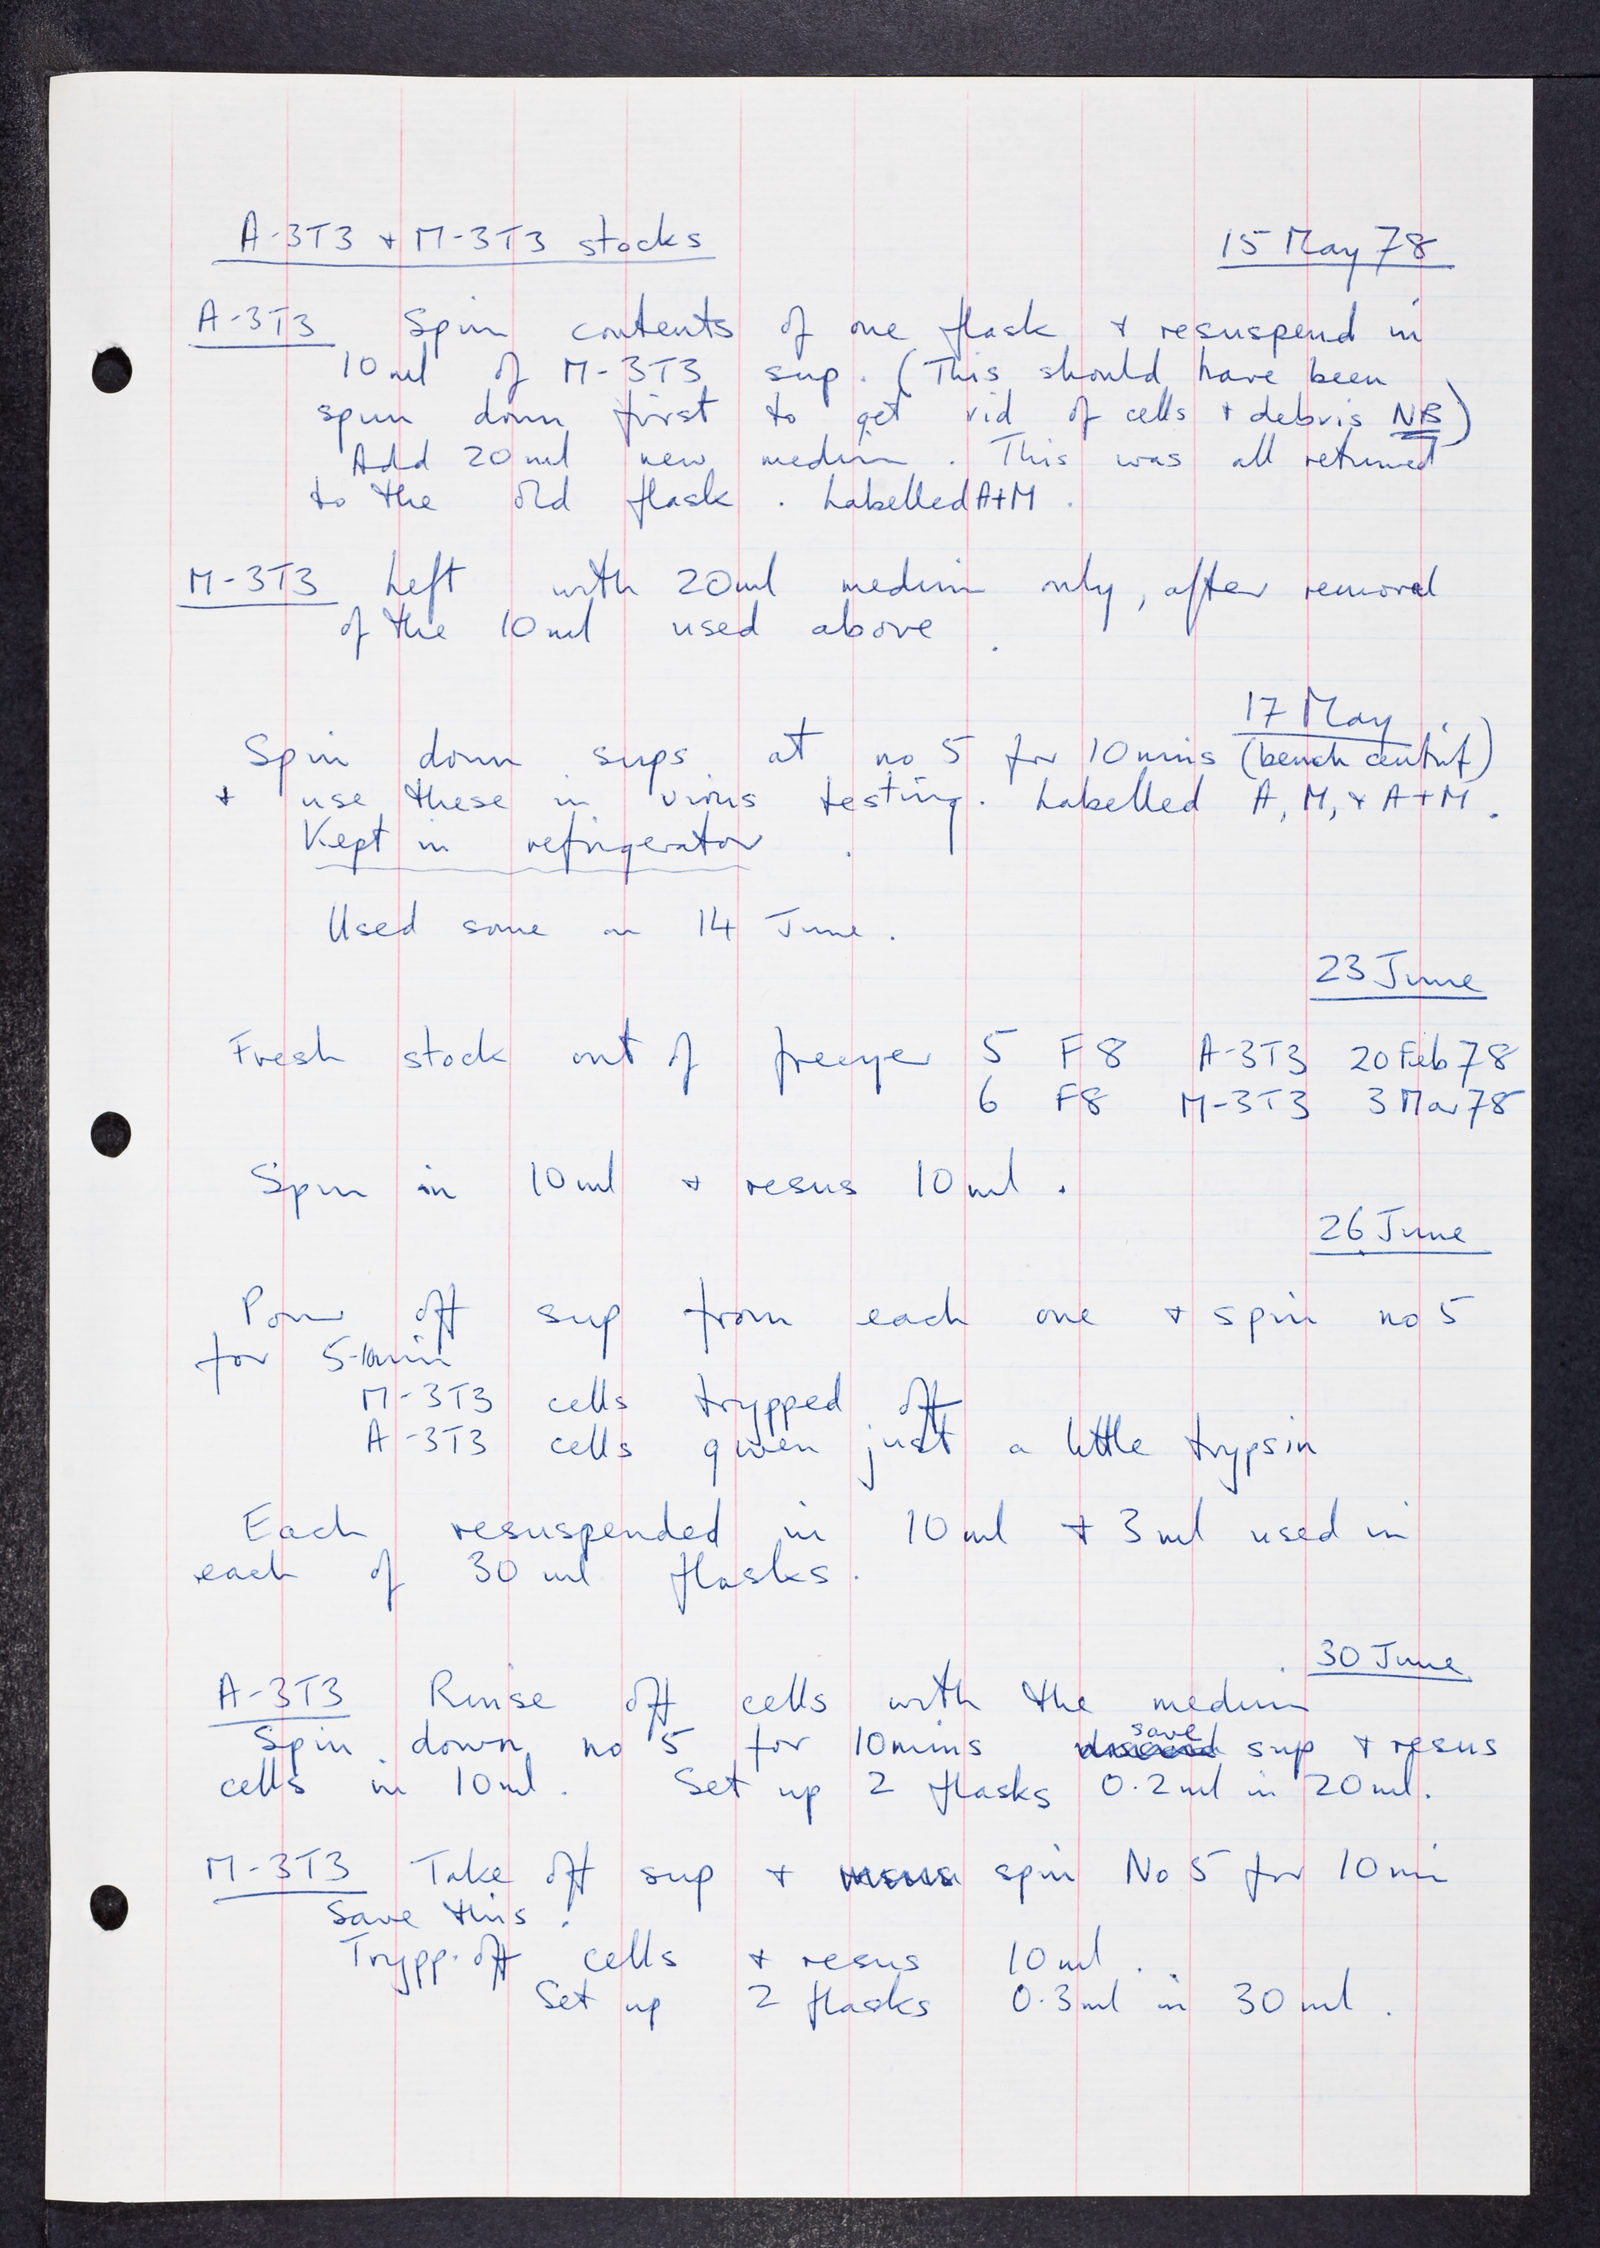 A-3T3 + M-3T3 stocks 15 May 78
A-3T3 Spin contents of one flask + resuspend in
10 ml of M-3T3 sup. (This should have been
spun down first to get rid of cells + debris NB)
Add 20 ml new medium. This was all returned
to the old flask. Labelled A+M.
M-3T3 Left with 20 ml medium only, after removal
of the 10 ml used above.
17 May
Spin down sups at no 5 for 10 mins (bench centrif)
+ use these in virus testing. Labelled A, M, + A+M.
Kept in refrigerator.
Used some on 14 June.
23 June
Fresh stock out of freezer 5 F8 A-3T3 20 Feb 78
6 F8 M-3T3 3 Mar 78
Spin in 10 ml + resus 10 ml.
26 June
Pour off sup from each one + spin no 5
for 5-10 min
M-3T3 cells trypped off
A-3T3 cells given just a little trypsin
Each resuspended in 10 ml + 3 ml used in
each of 30 ml flasks.
30 June
A-3T3 Rinse off cells with the medium
Spin down no 5 for 10 mins discard save sup + resus
cells in 10 ml. Set up 2 flasks 0.2 ml in 20 ml.
M-3T3 Take off sup + resus spin No 5 for 10 min
Save this.
Trypp. off cells + resus 10 ml.
Set up 2 flasks 0.3 ml in 30 ml.